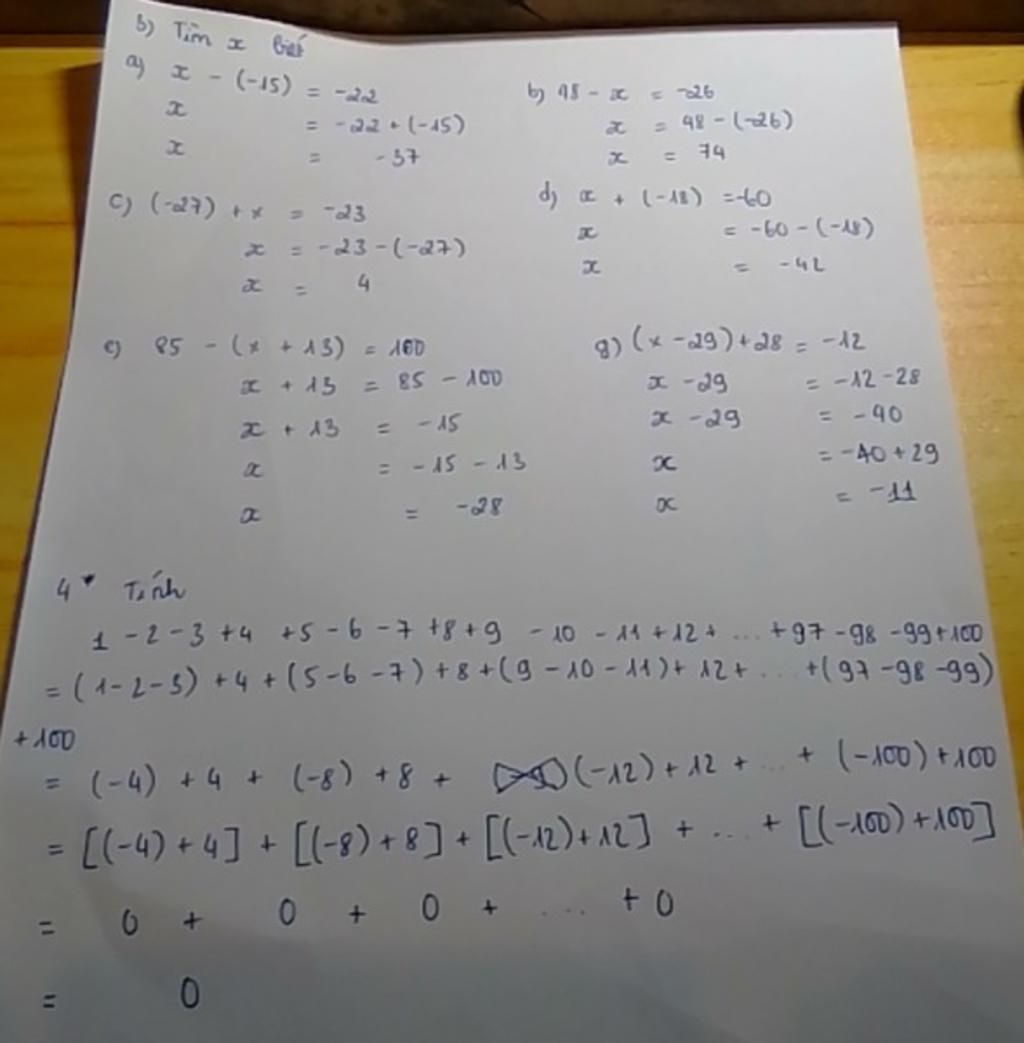 3) Tìm x biết
a) x - (-15) = -22
x = -22 + (-15)
x = -37
b) 48 - x = -26
x = 48 - (-26)
x = 74
c) (-27) + x = -23
x = -23 - (-27)
x = 4
d) x + (-18) = -60
x = -60 - (-18)
x = -42
e) 85 - (x + 13) = 100
x + 13 = 85 - 100
x + 13 = -15
x = -15 - 13
x = -28
g) (x - 29) + 28 = -12
x - 29 = -12 - 28
x - 29 = -40
x = -40 + 29
x = -11
4* Tính
1 - 2 - 3 + 4 + 5 - 6 - 7 + 8 + 9 - 10 - 11 + 12 + ... + 97 - 98 - 99 + 100
= (1 - 2 - 3) + 4 + (5 - 6 - 7) + 8 + (9 - 10 - 11) + 12 + ... + (97 - 98 - 99)
+ 100
= (-4) + 4 + (-8) + 8 + (-12) + 12 + ... + (-100) + 100
= [(-4) + 4] + [(-8) + 8] + [(-12) + 12] + ... + [(-100) + 100]
= 0 + 0 + 0 + ... + 0
= 0